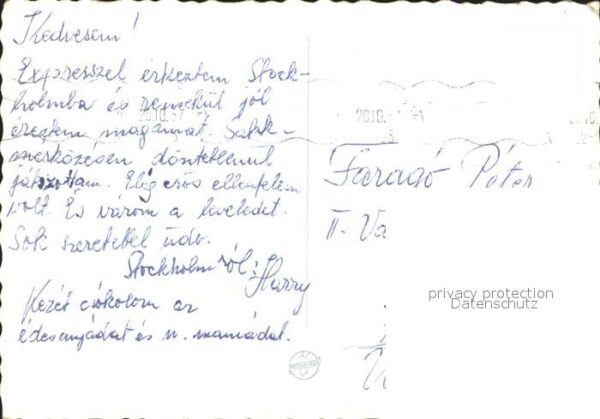 Kedvesem!
Expresszel érkeztem Stock-
holmba és remekül jól
éreztem magamat. Sakk-
mérkőzésen döntetlenül
játszottam. Elég erős ellenfelem
volt. És várom a leveledet.
Sok szeretettel üdv.
Stockholmról: Harry
Kezét csókolom az
édesanyádat és n. mamádat.
Faragó Péter
II. Va
privacy protection
Datenschutz